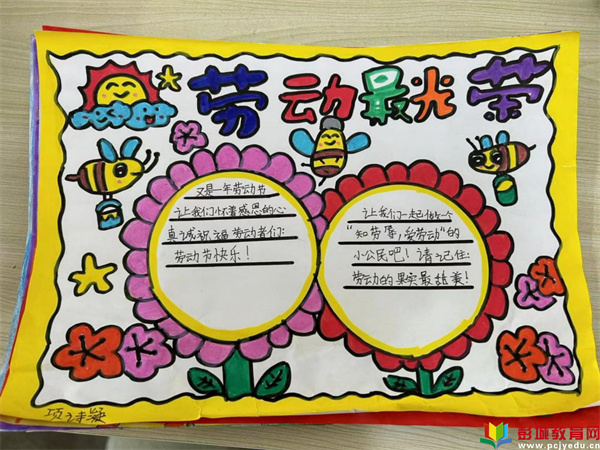 劳动最光荣
又是一年劳动节
让我们怀着感恩的心
真诚祝福劳动者们:
劳动节快乐!
让我们一起做一个
"知劳厚,爱劳动"的
小公民吧!请记住:
劳动的果实最甜美!
彭城教育网
www.pcjyedu.cn